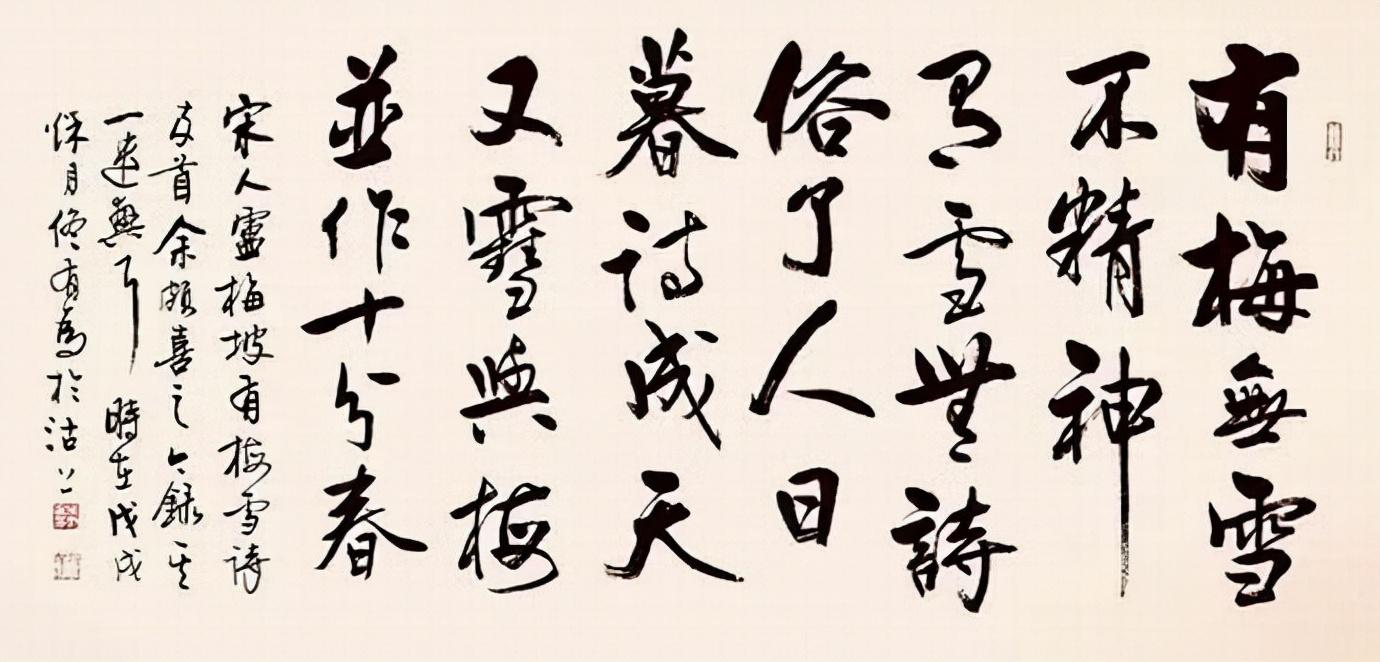 有梅無雪
不精神
有雪無詩
俗了人日
暮詩成天
又雪與梅
並作十分春
宋人盧梅坡有梅雪詩
首余頗喜之今錄其
一 時在戊戌
月佟有為於沽上